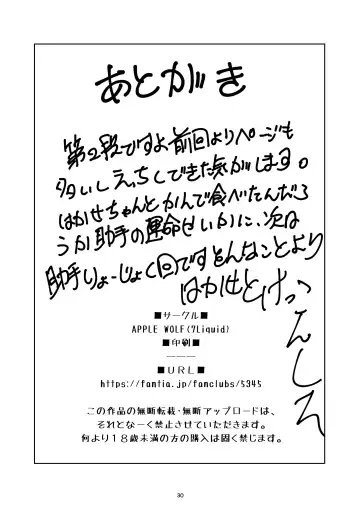 あとがき
第2段ですよ前回よりページも
多いしえっちくできた気がします。
はかせちゃんとかんで食べたんだろ
うか助手の運命せいかに、次は
助手りょーじょく回ですとんなことより
はかせとけっこんしろ
■サークル■
APPLE WOLF(7Liquid)
■印刷■
———
■URL■
https://fantia.jp/fanclubs/5345
この作品の無断転載・無断アップロードは、
それとなーく禁止させていただきます。
何より18歳未満の方の購入は固く禁じます。
30